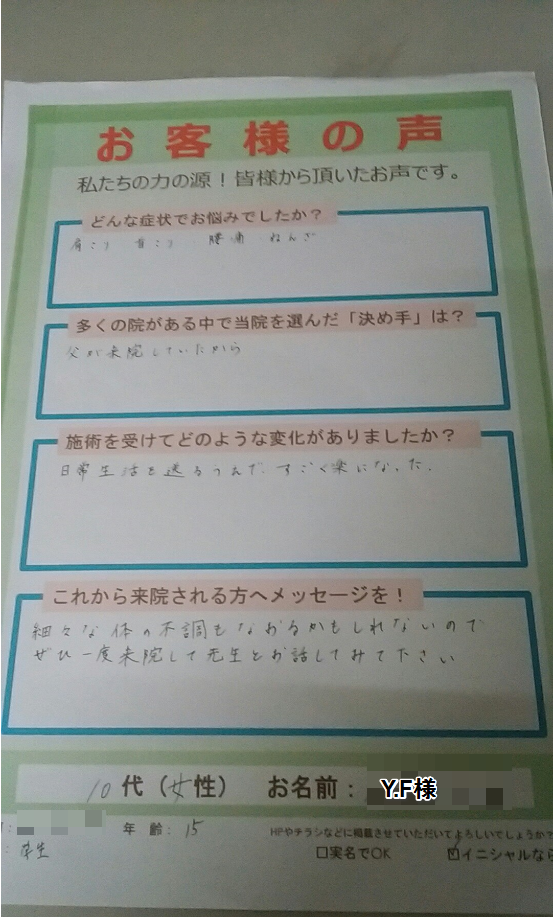 お客様の声
私たちの力の源！皆様から頂いたお声です。
どんな症状でお悩みでしたか？
肩こり 首こり 腰痛 ねんざ
多くの院がある中で当院を選んだ「決め手」は？
父が来院していたから
施術を受けてどのような変化がありましたか？
日常生活を送るうえで すごく楽になった.
これから来院される方へメッセージを！
細々な体の不調もなおるかもしれないので
ぜひ一度来院して先生とお話してみて下さい
10代（女性） お名前： Y.F様
年齢： 15
HPやチラシなどに掲載させていただいてよろしいでしょうか？
□実名でOK ☑イニシャルなら